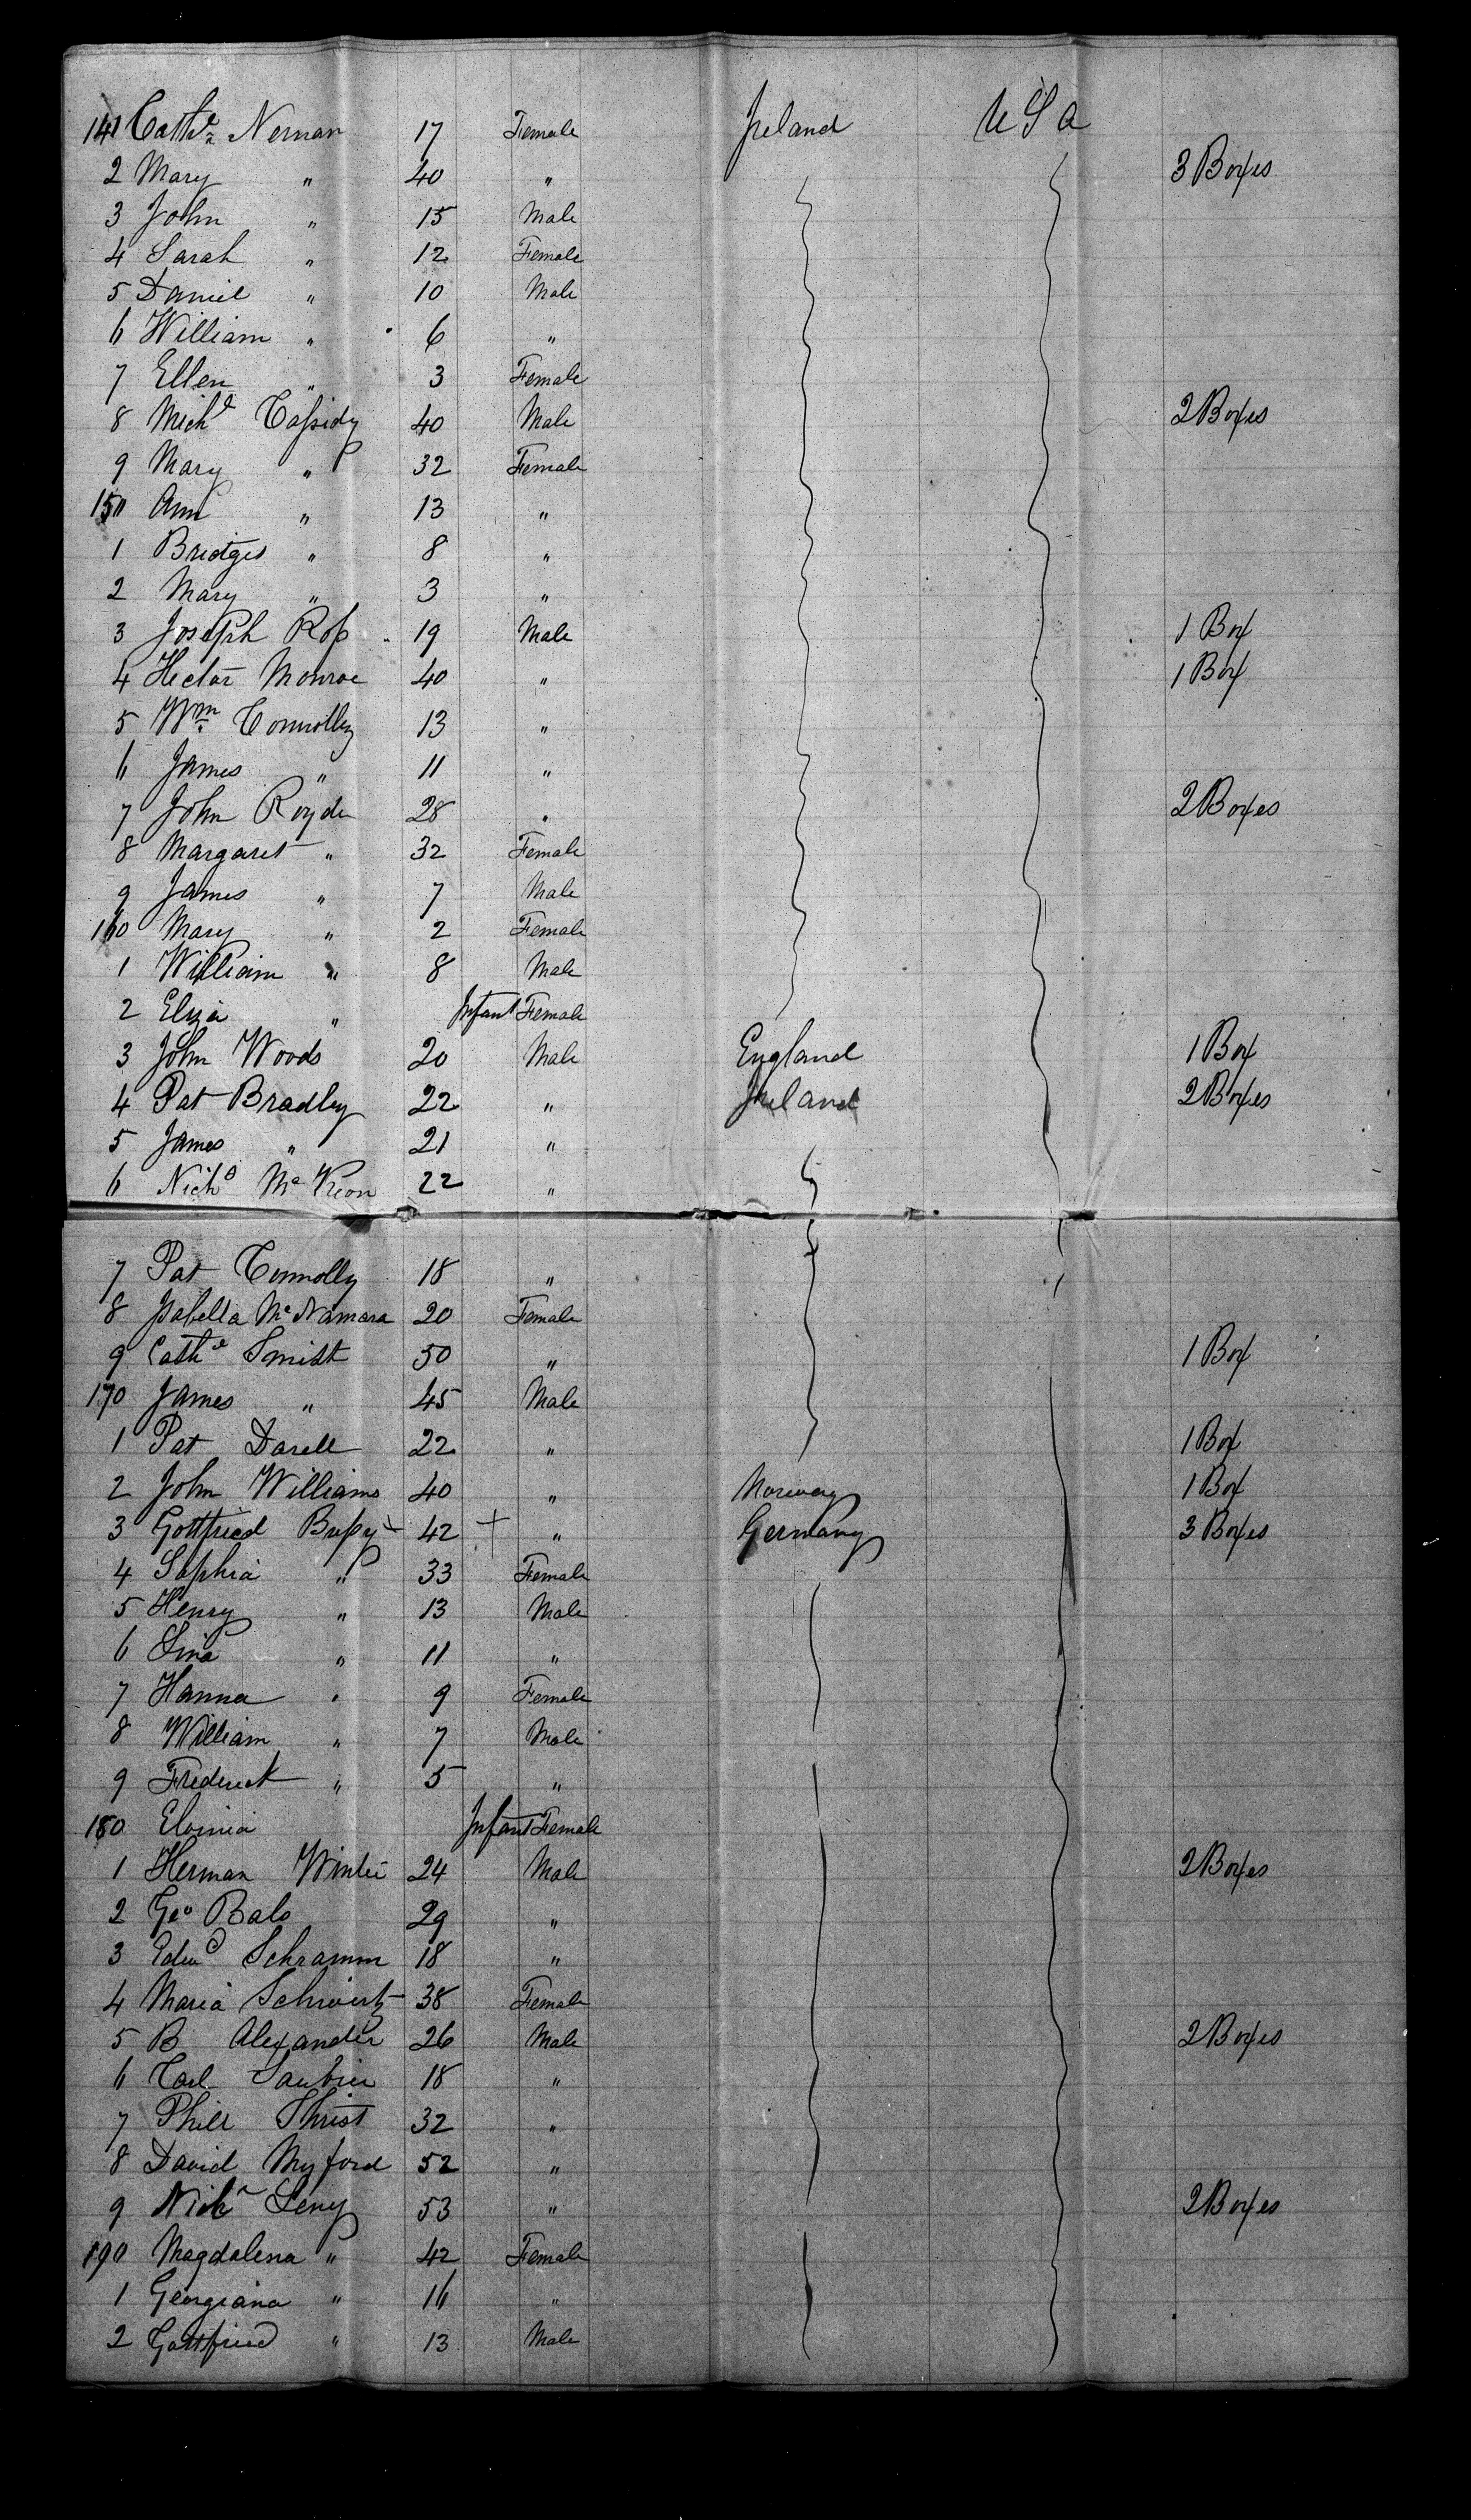 141 Cathe Nernan 17 Female Ireland U S A
2 Mary " 40 " 3 Boxes
3 John " 15 Male
4 Sarah " 12 Female
5 Daniel " 10 Male
6 William " 6 "
7 Ellen " 3 Female
8 Michl Cassidy 40 Male 2 Boxes
9 Mary " 32 Female
150 Ann " 13 "
1 Bridget " 8 "
2 Mary " 3 "
3 Joseph Ross 19 Male 1 Box
4 Hector Monroe 40 " 1 Box
5 Wm Connolly 13 "
6 James " 11 "
7 John Royde 28 " 2 Boxes
8 Margaret " 32 Female
9 James " 7 Male
160 Mary " 2 Female
1 William " 8 Male
2 Eliza " Infant Female
3 John Woods 20 Male England 1 Box
4 Pat Bradley 22 " Ireland 2 Boxes
5 James " 21 "
6 Nichs McKeon 22 "
7 Pat Connolly 18 "
8 Isabella McNamara 20 Female
9 Cathe Smith 50 " 1 Box
170 James " 45 Male
1 Pat Darell 22 " 1 Box
2 John Williams 40 " Norway 1 Box
3 Gottfried Bussy 42 + " Germany 3 Boxes
4 Sophia " 33 Female
5 Henry " 13 Male
6 Lina " 11 "
7 Hanna " 9 Female
8 William " 7 Male
9 Frederick " 5 "
180 Infant Female
1 Herman Winter 24 Male 2 Boxes
2 Geo Bals 29 "
3 Edwd Schramm 18 "
4 Maria 38 Female
5 B Alexander 26 Male 2 Boxes
6 Carl 18 "
7 Phill 32 "
8 David Myford 52 "
9 Nichs Leny 53 " 2 Boxes
190 Magdalena " 42 Female
1 Georgiana " 16 "
2 Gottfried " 13 Male